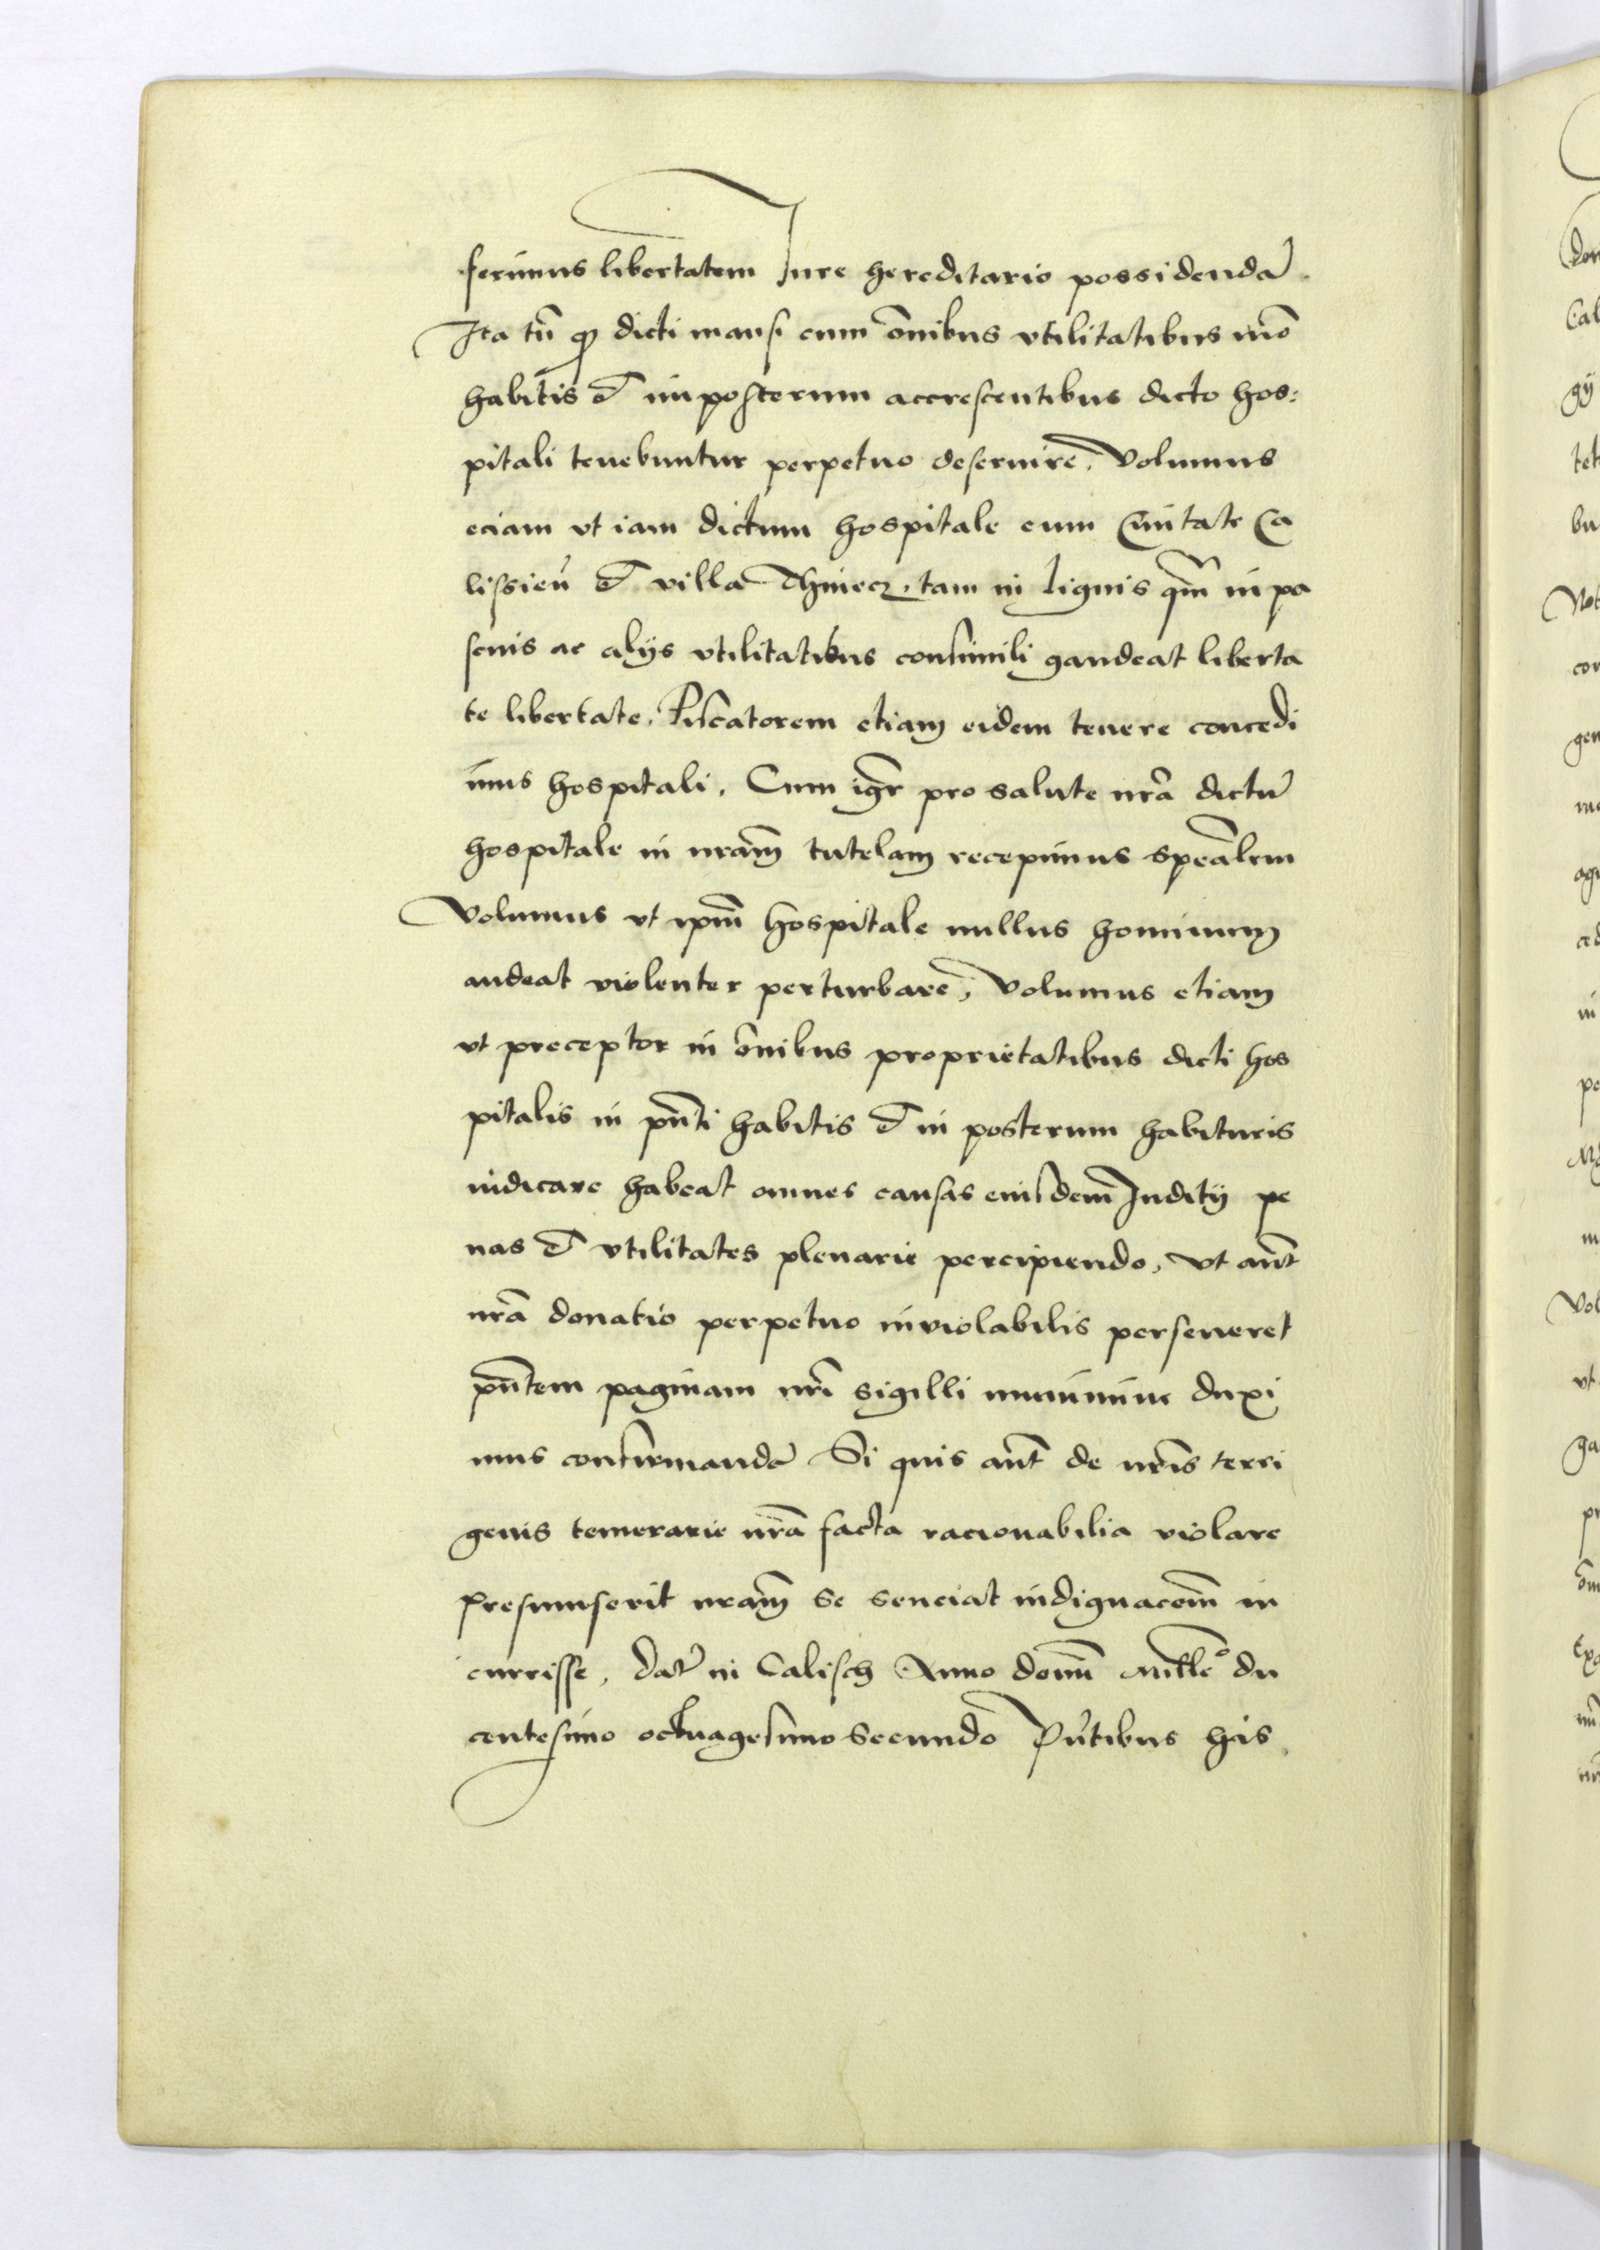 ferimus libertatem Jure hereditario possidendā
Ita tn̄ ꝙ dicti mansi cum om̄ibus vtilitatibus mō
habitis et imposterum accrescentibus dicto hos:
pitali tenebuntur perpetuo deseruire, Volumus
eciam vt iam dictum hospitale cum Ciuitate Ca
lissien̄ et villa Thiniecz, tam in lignis qm̄ in pa
scuis ac alijs vtilitatibus consimili gaudeat liberta
te libertate, Piscatorem etiam eidem tenere concedi
imus hospitali, Cum igr̄ pro salute nrā dictū
hospitale in nram̄ tutelam recepimus speālem
Volumus vt ipm̄ hospitale nullus hominum
audeat violenter perturbare, Volumus etiam
vt preceptor in om̄ibus proprietatibus dicti hos
pitalis in pn̄ti habitis et in posterum habituris
iudicare habeat omnes causas eiusdem Juditij pe
nas et vtilitates plenarie percipiendo, Vt aūt
nrā donatio perpetuo inviolabilis perseueret
pn̄tem paginam nrī sigilli munimine duxi
mus confirmandā Si quis aūt de nrīs terri
genis temerarie nrā facta racionabilia violare
presumserit nram̄ se senciat indignacōem in
currisse, Dat̄ in Calisch Anno domī Mill̄mo du
centesimo octuagesimo secundo Pn̄tibus his